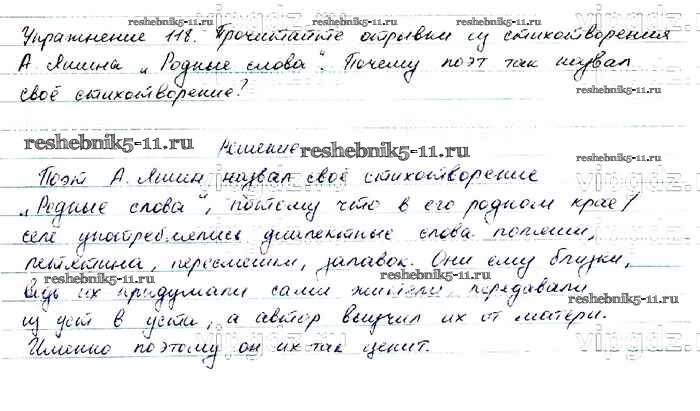 reshebnik5-11.ru reshebnik5-11.ru
Упражнение 118. Прочитайте отрывки из стихотворения
А. Яшина „Родные слова“. Почему поэт так назвал
своё стихотворение?
reshebnik5-11.ru
vipgdz.ru
reshebnik5-11.ru Решение reshebnik5-11.ru reshebnik5-11.ru
vipgdz.ru
Поэт А. Яшин назвал своё стихотворение
„Родные слова“, потому что в его родном крае/
селе употреблялись диалектные слова
пересмешки, залавок. Они ему близки,
reshebnik5-11.ru reshebnik5-11.ru
ведь их придумали сами жители, передавали
reshebnik5-11.ru
из уст в уста, а автор выучил их от матери.
Именно поэтому он их так ценит.
vipgdz.ru